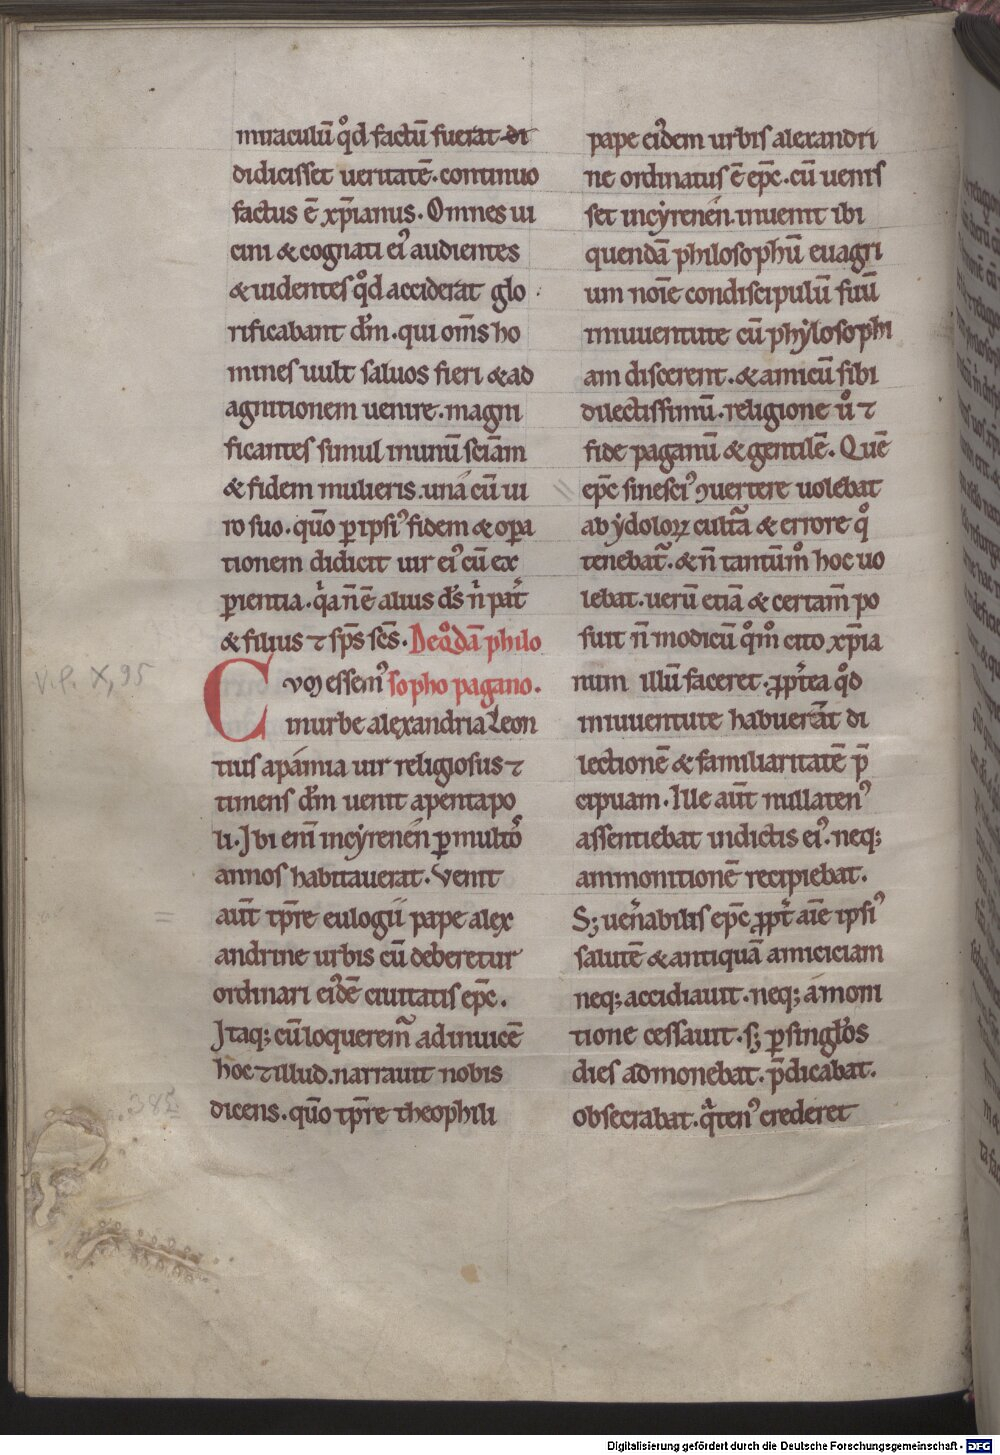 miraculū qͦd factū fuerat di
didicisset ueritatē. continuo
factus ē xp̄ianus. Omnes ui
cini & cognati eiꝰ audientes
& uidentes qͦd acciderat glo
rificabant dm̄. qui om̄s ho
mines uult saluos fieri & ad
agnitionem uenire. magni
ficantes simul in unū sciām
& fidem mulieris. una cū ui
ro suo. quō ꝑ ipsiꝰ fidem & oꝑa
tionem didicit uir eiꝰ cū ex
ꝑientia. qͥa n̄ ē alius ds̄ nͥ pat̄
& filius ⁊ sp̄s sc̄s. De qͦdā philo
sopho pagano.
Cvm essemꝰ
in urbe alexandria Leon
tius apamia uir religiosus ⁊
timens dm̄ uenit apentapo
li. Ibi enī incyrenen ꝑ multos
annos habitauerat. Venit
aūt tp̄re eulogii pape alex
andrine urbis cū deberetur
ordinari eiꝰdē ciuitatis ep̄c.
Itaq; cū loqueremur adinuicē
hoc ⁊ illud. narrauit nobis
dicens. quō tp̄re theophili
pape eiꝰdem urbis alexandri
ne ordinatus ē ep̄c. cū uenis
set incyrenen. inuenit ibi
quendā philosophū euagri
um noīe condiscipulū suū
in iuuentute cū phylosophi
am discerent. & amicū sibi
dilectissimū. religione uͦ ⁊
fide paganū & gentilē. Quē
ep̄c sinesciꝰ ꝯuertere uolebat
ab ydoloꝝ cultura & errore qͦ
tenebat᷑. & n̄ tantūmͦ hoc uo
lebat. uerū etiā & certam̄ po
suit n̄ modicū qͦmͦ cito xp̄ia
num illum faceret. ꝓpt̄ea qͦd
in iuuentute habuerāt di
lectionē & familiaritatē p̄
cipuam. Ille aūt nullatenꝰ
assentiebat in dictis eiꝰ. neq;
ammonitionē recipiebat.
S; uen̄abilis ep̄c ꝓpt̄ aīe ipsiꝰ
salutē & antiquā amiciciam
neq; accidiauit. neq; a moni
tione cessauit. s; ꝑ singlōs
dies admonebat. p̄dicabat.
obsecrabat. qͣtenꝰ crederet
V.P. X, 95
385
Digitalisierung gefördert durch die Deutsche Forschungsgemeinschaft - DFG